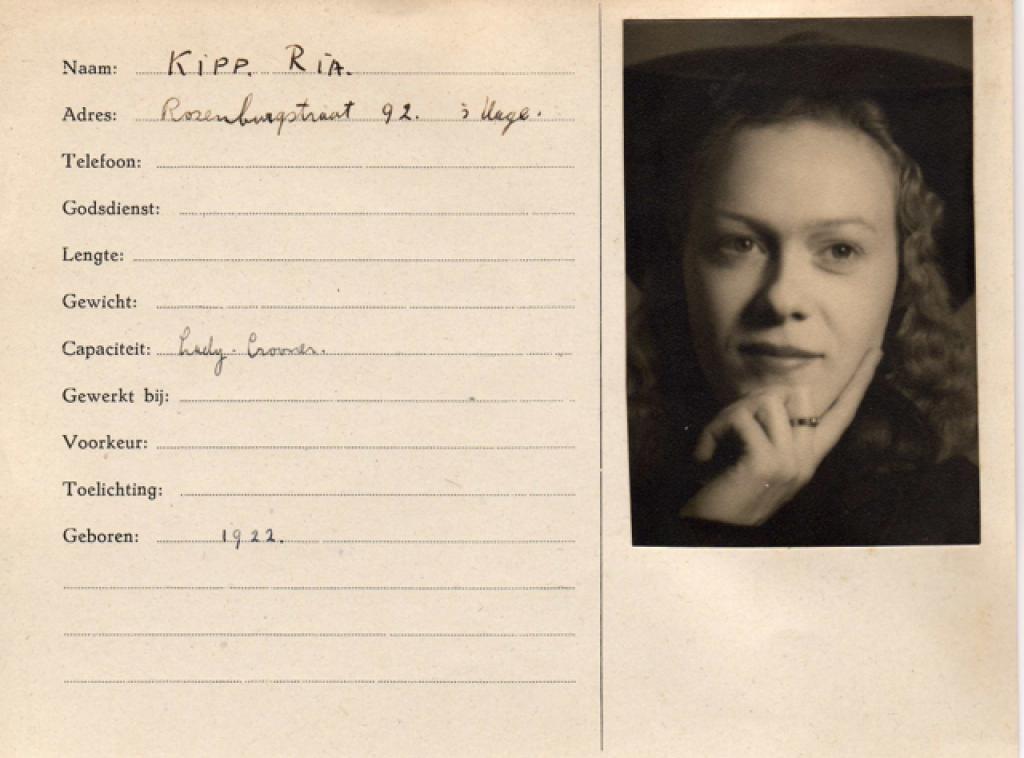 Naam: KIPP. RIA.
Adres: Rozenburgstraat 92. 's Hage.
Telefoon:
Godsdienst:
Lengte:
Gewicht:
Capaciteit: Lady-Crooner.
Gewerkt bij:
Voorkeur:
Toelichting:
Geboren: 1922.